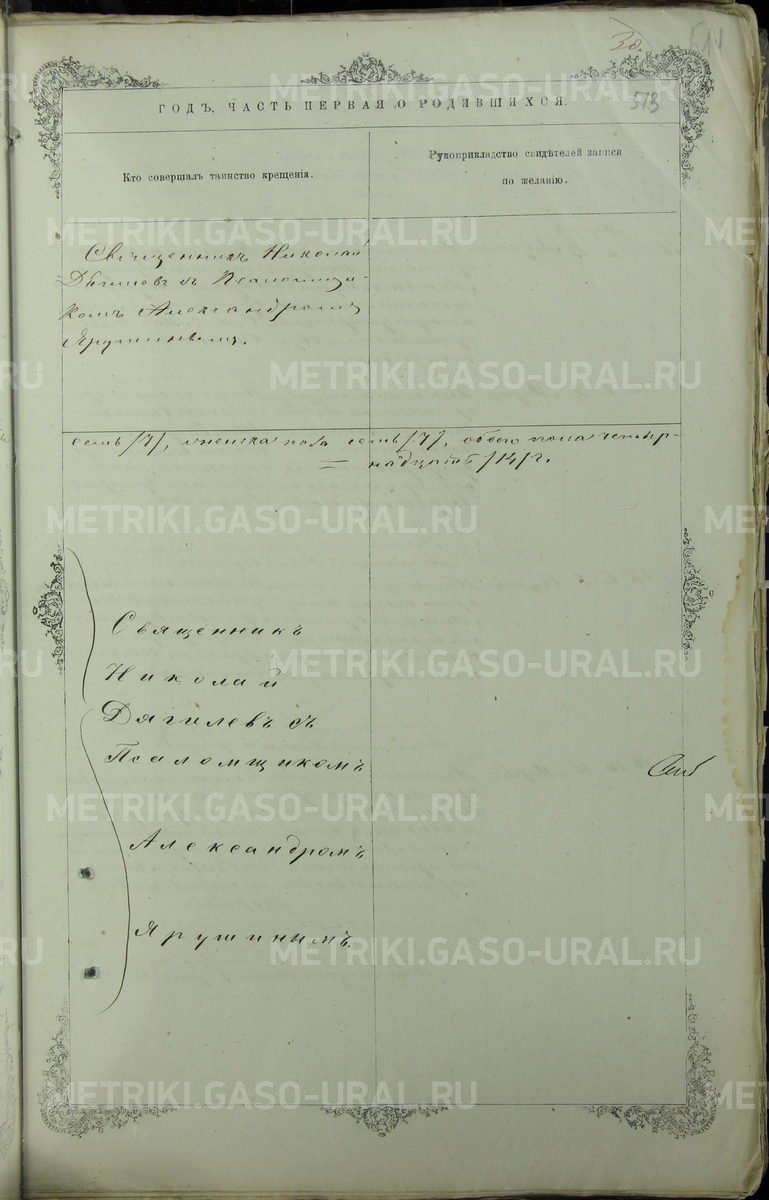 30.
511
513
ГОДЪ, ЧАСТЬ ПЕРВАЯ О РОДИВШИХСЯ.
Кто совершалъ таинство крещенія.
Рукоприкладство свидѣтелей записи
по желанію.
Священникъ Николай
Дягилевъ съ Псаломщи-
комъ Александромъ
Ярушинымъ.
семь /7/, женска пола семь /7/, обоего пола четыр-
надцать /14/.
Священникъ
Николай
Дягилевъ съ
Псаломщикомъ
Александромъ
Ярушинымъ.
METRIKI.GASO-URAL.RU